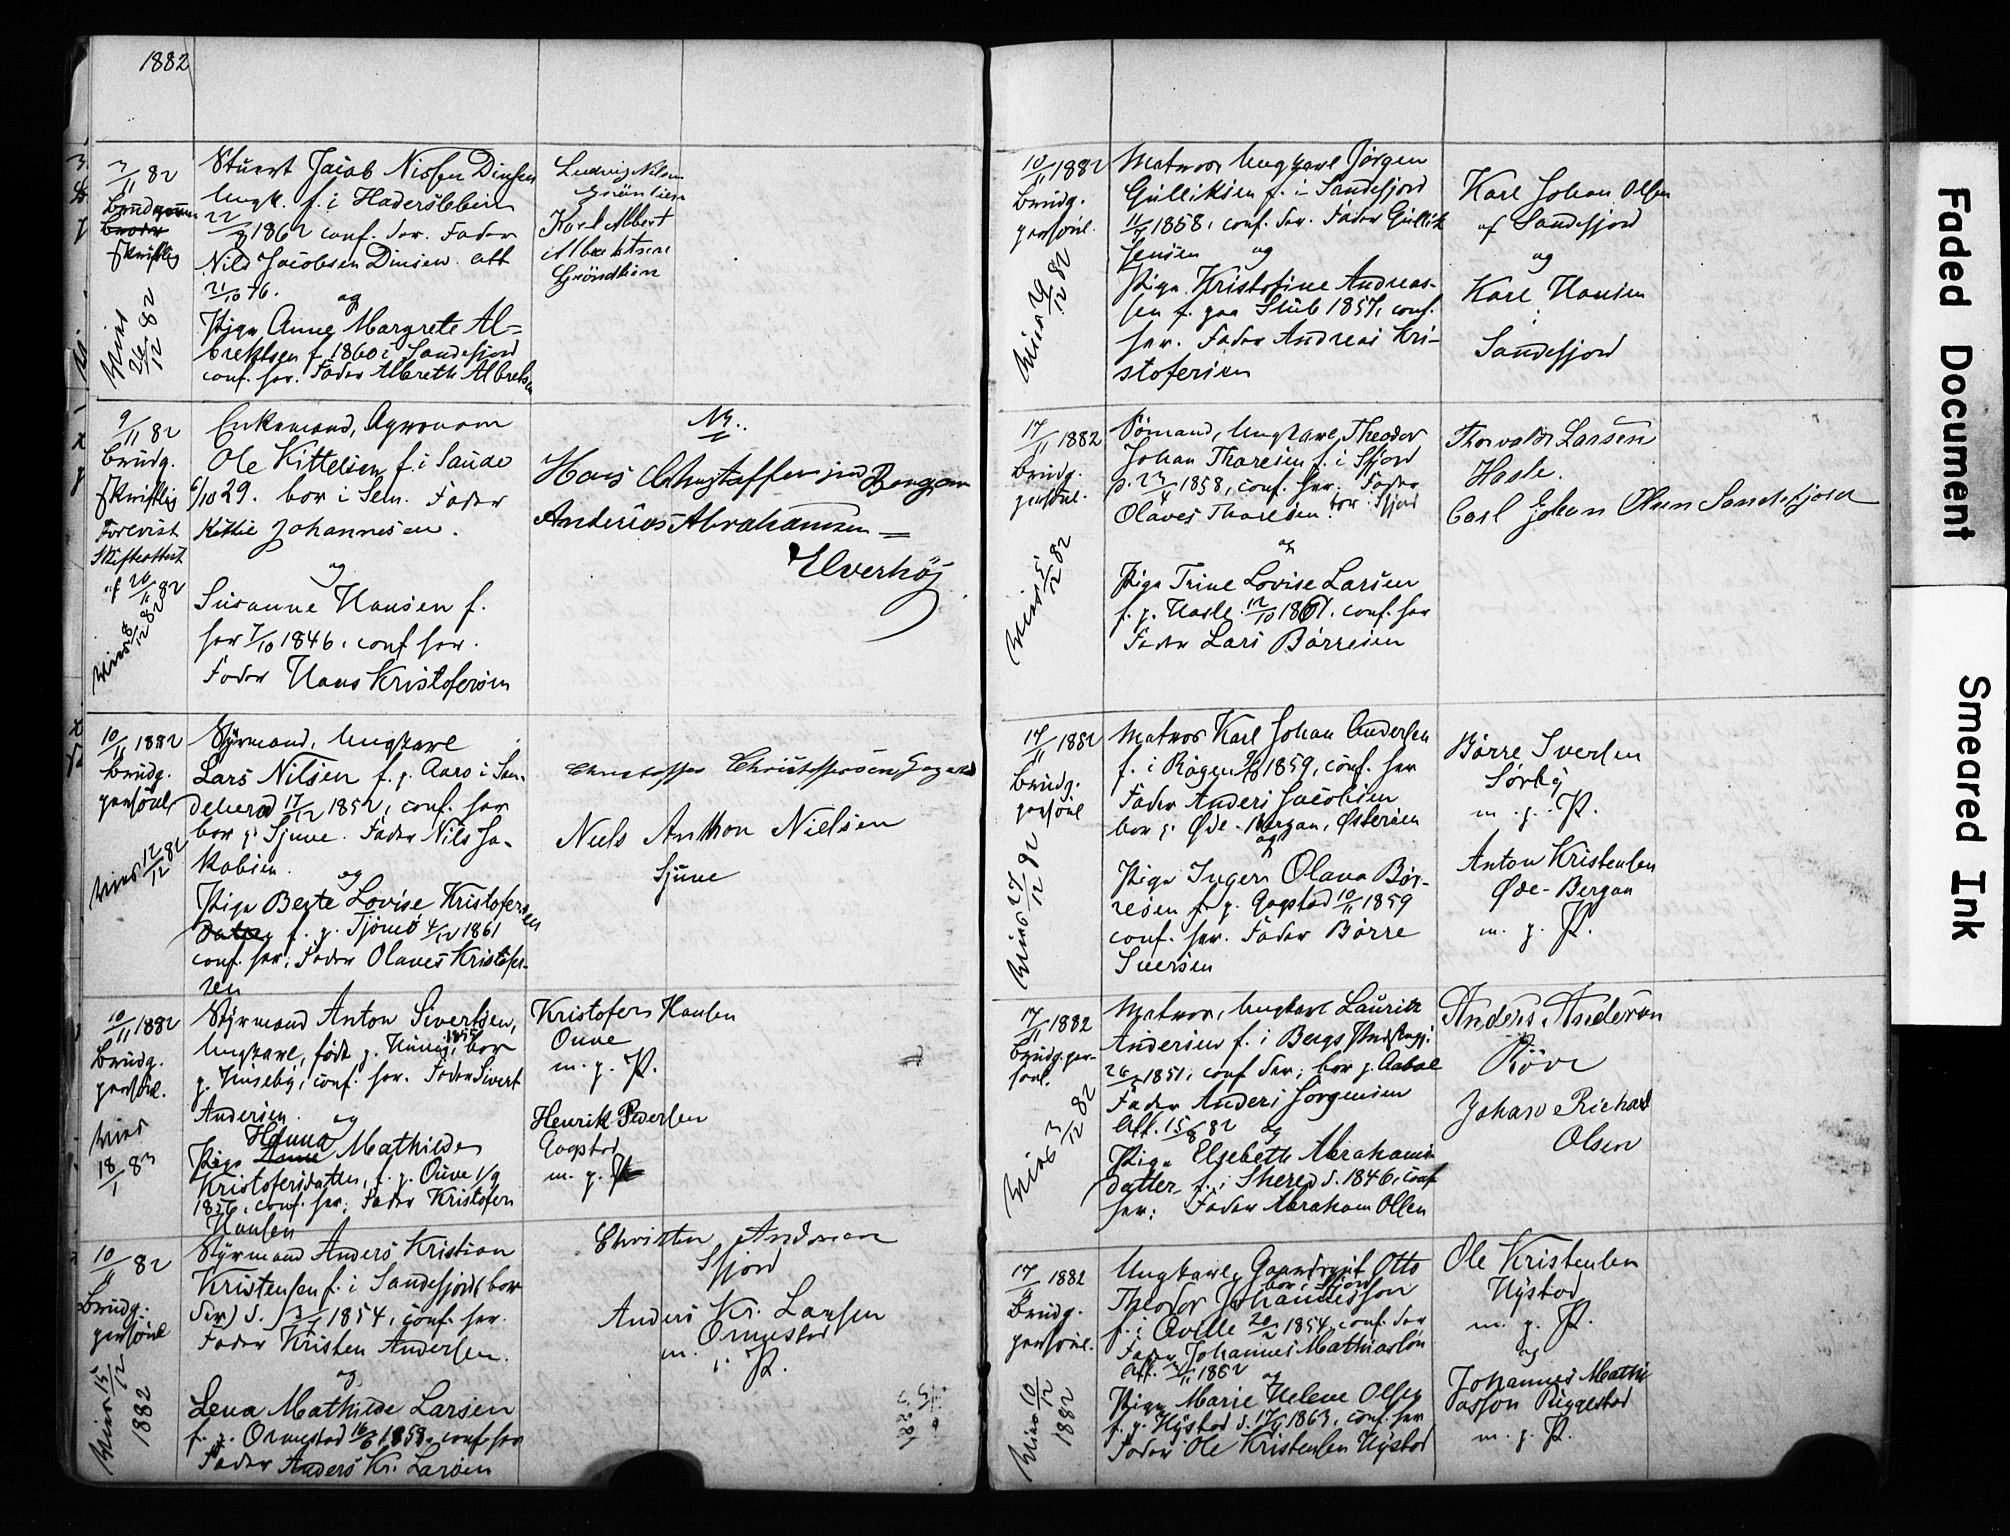 1882
3/11 82
Brudgom
skriftlig
Viet 26/12 82
Stuert Jacob Nissen Dinsen
Ungk. f. i Hadersleben
22/8 1862 conf. der. Fader
Nils Jacobsen Dinsen. att
21/10 76.
og
Pige Anne Margrete Al=
brektsen f. 1860 i Sandefjord
conf. her. Fader Albreth Albretsen
Ludvig Nilsen
Karl Albert
9/11 82
Brudg.
skriftlig
Forevist
Skifteattest
af 20/11 82
Viet 8/12 82
Enkemand, Agronom
Ole Kittelsen f. i Saude
6/10 29. bor i Sem. Fader
Kittil Johannesen.
og
Susanne Hansen f.
her 7/10 1846. conf her.
Fader Hans Kristofersen
Hans Christoffersen Bergan
Anderias Abrahamsen =
Elverhöj
10/11 1882
Brudg.
personl.
Viet 12/12 82
Styrmand, Ungkarl
Lars Nilsen f. p. Aaro i San-
deherred 17/12 1852, conf. her
bor p. Sjuve. Fader Nils Ja-
kobsen.
og
Pige Berte Lovise Kristofersen
f. p. Tjömö 4/12 1861
conf. her, Fader Olaves Kristofer-
sen
Christoffer Christoffersen
Niels Anthon Nielsen
Sjuve
10/11 1882
Brudg.
personl.
Viet
18/1 83
Styrmand Anton Sivertsen,
Ungkarl, født p. 1855, bor
p. Huseby, conf. her. Fader Sivert
Andersen.
og
Hanna
Pige Anne Mathilde
Kristofersdatter, f. p. Ouve 1/9
1856, conf. her; Fader Kristofer
Hansen
Kristofer Hansen
Ouve
m. p. P.
Henrik Pedersen
Gogstad
m. p. P
10/11 82
Brudg.
personl
Viet 15/12
1882
Styrmand Anders Kristian
Kristensen f. i Sandefjord (bor
der) d. 1854, conf. her.
Fader Kristen Andersen.
og
Lena Mathilde Larsen
f. p. Ormestad 16/6 1858. conf. her
Fader Anders Kr. Larsen
Christen Andersen
Sfjord
Anders Kr. Larsen
Ormestad
m. p. P.
10/11 1882
Brudg.
personl.
Viet 29/12 82
Matros Ungkarl Jörgen
Gulliksen f. i Sandefjord
1858, conf. der. Fader Gullik
Jensen
og
Pige Kristofine Andreas-
sen f. paa Stub 1857, conf.
her. Fader Andreas Kri-
stofersen
Karl Johan Olsen
af Sandefjord
og
Karl Hansen
Sandefjord
17/11 1882
Brudg.
personl.
Viet 5/12 82
Sömand, Ungkarl, Theodor
Johan Thoresen f. i Sfjord
d. 23/4 1858, conf. her. Fader
Olaves Thoresen bor i Sfjord
og
Pige Trine Lovise Larsen
f. p. Hasle 12/10 1861. conf. her
Fader Lars Börresen
Thorvald Larsen
Hasle.
Carl Johan Olsen Sandefjord
14/11 1882
Brudg.
personl
Viet 27/12 82
Matros Karl Johan Andersen
f. i Rögen 1859, conf. her
Fader Anders Jacobsen
bor p. Øde-Bergan, Østeröen
og
Pige Inger Olava Bör-
resen f. p. Gogstad 10/11 1859
conf. her. Fader Börre
Iversen
Börre Iversen
Sörby
m. p. P.
Anton Kristensen
Øde-Bergan
m. p. P.
17/11 1882
Brudg. per-
sonl.
Viet 3/12 82
Matros, Ungkarl Lauritz
Andersen f. i Bergs Præstegj.
1851, conf der; bor p. Aabol
Fader Anders Jörgensen
Att. 15/8 82
og
Pige Elsebeth Abrahams-
datter f. i Skeree d. 1846, conf
her; Fader Abraham Olsen
Anders Anderson
Röve
Johan Richard
Olsen
17/11 1882
Brudg.
personl.
Viet 10/12
1882
Ungkarl, Gaardbrug. Otto
bor i Sfjord
Theodor Johannesson
f. i Qville 20/2 1854, conf. der
Fader Johannes Mathiasson
Att. 1882
og
Pige Marie Helene Olsen
f. p. Hystad d. 1863, conf. her
Fader Ole Kristensen Hystad
Ole Kristensen
Hystad
m. p. P.
og
Johannes Mathi
asson
m. p. P.
Faded Document
Smeared Ink